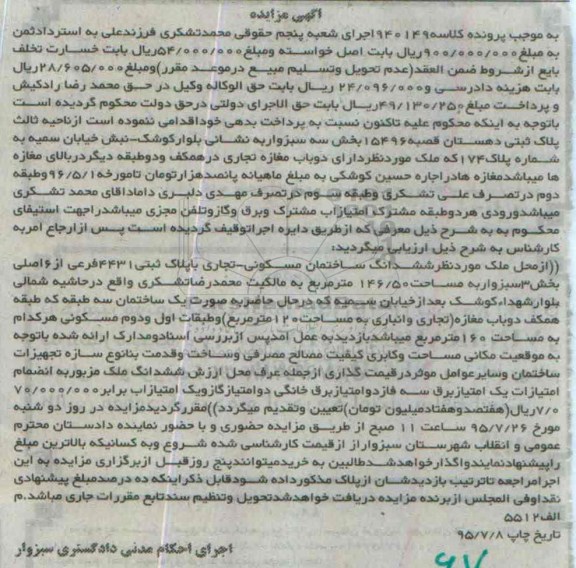 آگهی مزایده
به موجب پرونده کلاسه۹۴۰۱۴۹اجرای شعبه پنجم حقوقی محمدتشکری فرزندعلی به استردادثمن
به مبلغ۹۰۰/۰۰۰/۰۰۰ریال بابت اصل خواسته ومبلغ۵۴/۰۰۰/۰۰۰ریال بابت خسارت تخلف
بایع ازشروط ضمن العقد(عدم تحویل وتسلیم مبیع درموعد مقرر)ومبلغ۲۸/۶۰۵/۰۰۰ریال
بابت هزینه دادرسی و۲۴/۰۹۶/۰۰۰ ریال بابت حق الوکاله وکیل در حق محمد رضا رادکیش
و پرداخت مبلغ۴۹/۱۳۰/۲۵۰ریال بابت حق الاجرای دولتی درحق دولت محکوم گردیده است
باتوجه به اینکه محکوم علیه تاکنون نسبت به پرداخت بدهی خوداقدامی ننموده است ازناحیه ثالث
پلاک ثبتی دهستان قصبه۱۵۴۹۶بخش سه سبزواربه نشانی بلوارکوشک-نبش خیابان سمیه به
شماره پلاک۱۷۴که ملک موردنظردارای دوباب مغازه تجاری درهمکف ودوطبقه دیگردربالای مغازه
ها میباشدمغازه هادراجاره حسین کوشکی به مبلغ ماهیانه پانصدهزارتومان تامورخه۹۶/۵/۱وطبقه
دوم درتصرف علی تشکری وطبقه سوم درتصرف مهدی دلبری داماداقای محمد تشکری
میباشدورودی هردوطبقه مشترک امتیازاب مشترک وبرق وگازوتلفن مجزی میباشددراجهت استیفای
محکوم به به شرح ذیل معرفی که ازطریق دایره اجراتوقیف گردیده است پس ازارجاع امربه
کارشناس به شرح ذیل ارزیابی میگردید:
((ازمحل ملک موردنظرششدانگ ساختمان مسکونی-تجاری باپلاک ثبتی۴۴۳۱فرعی از۶اصلی
بخش۳سبزواربه مساحت۱۴۶/۵۰ مترمربع به مالکیت محمدرضاتشکری واقع درحاشیه شمالی
بلوارشهداءکوشک بعدازخیابان سمیه که درحال حاضربه صورت یک ساختمان سه طبقه که طبقه
همکف دوباب مغازه(تجاری وانباری به مساحت۱۲۰مترمربع)وطبقات اول ودوم مسکونی هرکدام
به مساحت ۱۶۰مترمربع میباشدبازدیدبه عمل امدپس ازبررسی اسنادومدارک ارائه شده باتوجه
به موقعیت مکانی مساحت وکابری کیفیت مصالح مصرفی وساخت وقدمت بنانوع سازه تجهیزات
ساختمان وسایرعوامل موثردرقیمت گذاری ازجمله عرف محل ارزش ششدانگ ملک مزبوربه انضمام
امتیازات یک امتیازبرق سه فازدوامتیازبرق خانگی دوامتیازگازویک امتیازاب برابر۷۰/۰۰۰/۰۰۰
۷/۰ریال(هفتصدوهفتادمیلیون تومان)تعیین وتقدیم میگردد))مقررگردیدمزایده در روز دو شنبه
مورخ ۹۵/۷/۲۶ ساعت ۱۱ صبح از طریق مزایده حضوری و با حضور نماینده دادستان محترم
عمومی و انقلاب شهرستان سبزواراز ازقیمت کارشناسی شده شروع وبه کسانیکه بالاترین مبلغ
راپیشنهادنمایندواگذارخواهدشدطالبین به خریدمیتوانندپنج روزقبل ازبرگزاری مزایده به این
اجرامراجعه تاترتیب بازدیدشان ازپلاک مذکورداده شودقابل ذکراینکه ده درصدمبلغ پیشنهادی
نقداوفی المجلس ازبرنده مزایده دریافت خواهدشدتحویل وتنظیم سندتابع مقررات جاری میباشد.م
الف۵۵۱۲
تاریخ چاپ ۹۵/۷/۸
اجرای احکام مدنی دادگستری سبزوار
۹۷